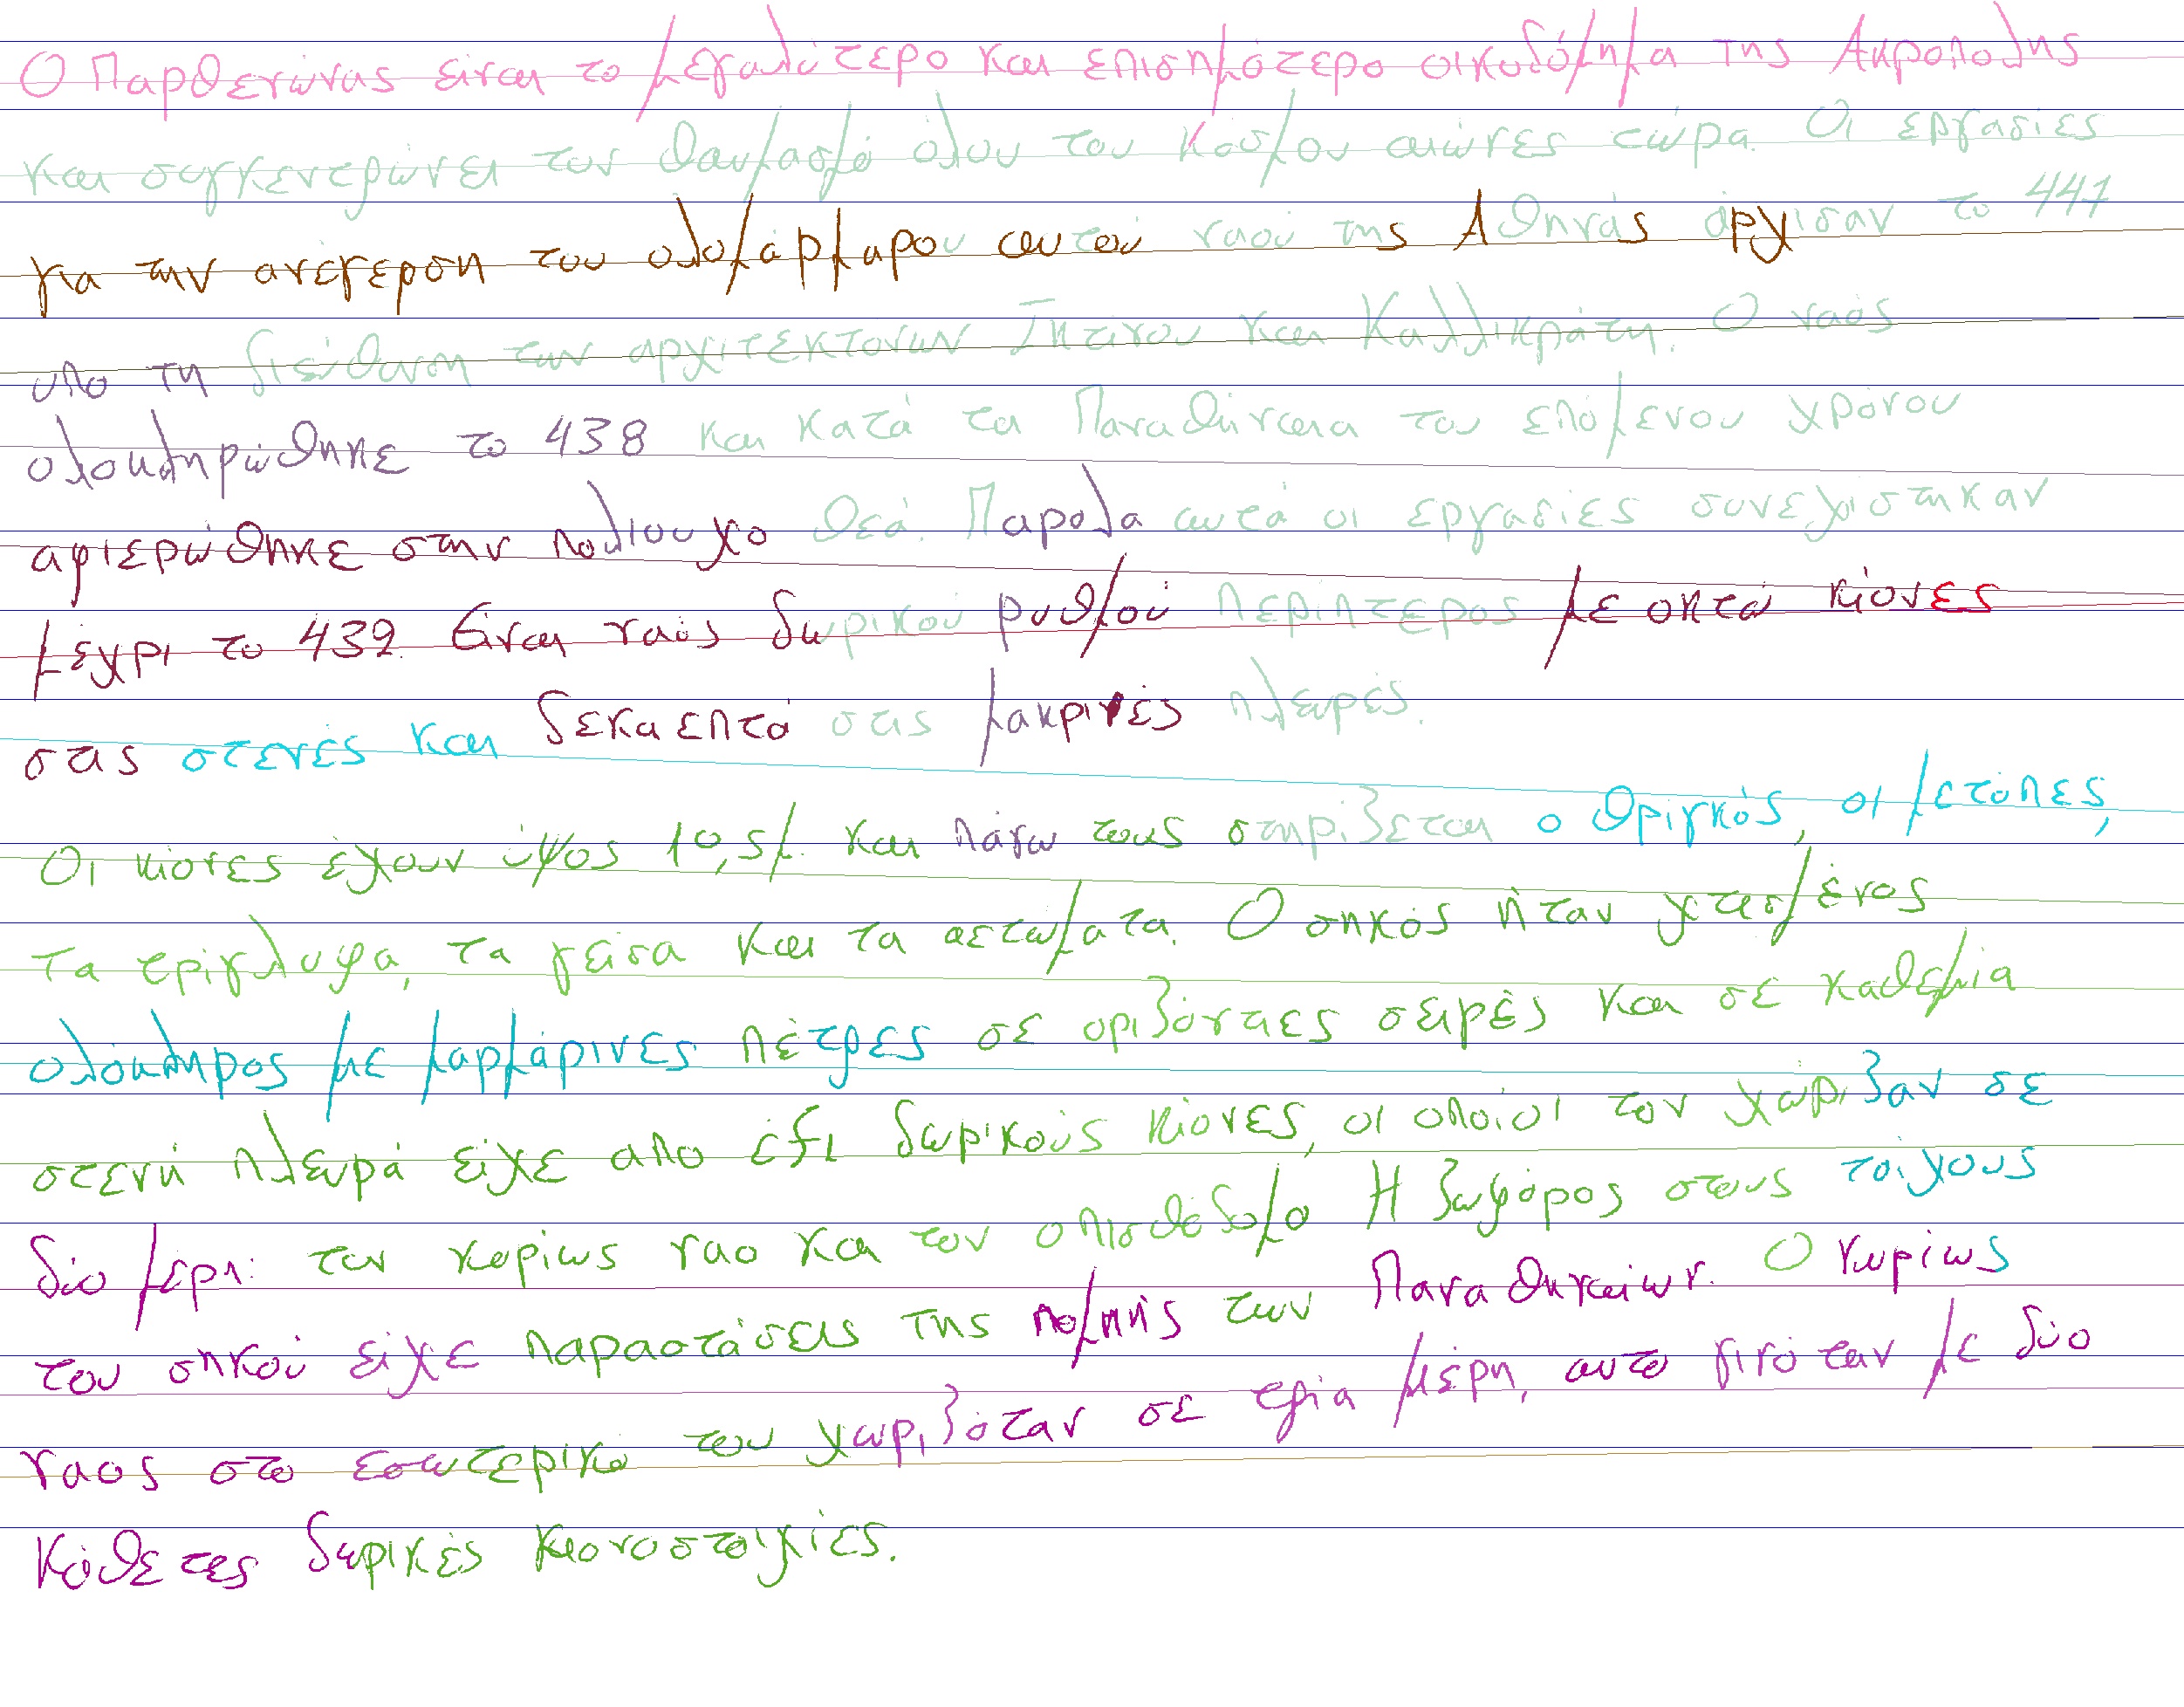 Ο Παρθενώνας είναι το μεγαλύτερο και επισημότερο οικοδόμημα της Ακροπολης
και συγκεντρώνει τον θαυμασμό όλου του κόσμου αιώνες τώρα. Οι εργασίες
για την ανέγερση του ολομάρμαρου αυτού ναού της Αθηνάς άρχισαν το 447
υπο τη διεύθυνση των αρχιτεκτονων Ικτίνου και Καλλικράτη. Ο ναός
ολοκληρώθηκε το 438 και κατά τα Παναθήναια του επόμενου χρόνου
αφιερώθηκε στην πολιουχο θεά. Παρολα αυτά οι εργασίες συνεχίστηκαν
μέχρι το 432. Είναι ναός δωρικού ρυθμού περίπτερος με οκτώ κίονες
στις στενές και δεκαεπτά στις μακρινές πλευρές.
Οι κίονες έχουν ύψος 10,5μ. και πάνω τους στηρίζεται ο θριγκός, οι μετόπες,
τα τρίγλυφα, τα γείσα και τα αετώματα. Ο σηκός ήταν χτισμένος
ολόκληρος με μαρμάρινες πέτρες σε οριζόντιες σειρές και σε καθεμία
στενή πλευρά είχε απο έξι δωρικούς κίονες, οι οποίοι τον χώριζαν σε
δύο μέρη: τον κυρίως ναο και τον οπισθόδομο Η ζωφόρος στους τοίχους
του σηκού είχε παραστάσεις της πομπής των Παναθηναίων. Ο κυρίως
ναος στο εσωτερικό του χωριζόταν σε τρία μέρη, αυτο γινόταν με δύο
κάθετες δωρικές κιονοστοιχίες.